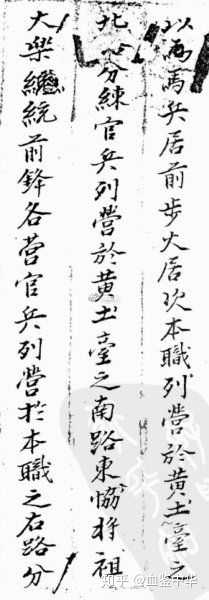 以為馬兵居前步火居次本職列營於黃土臺之
北分練官兵列營於黃土臺之南路東協將祖
大樂繼統前鋒各營官兵列營扵本職之右路分
知乎 @血鉴中华